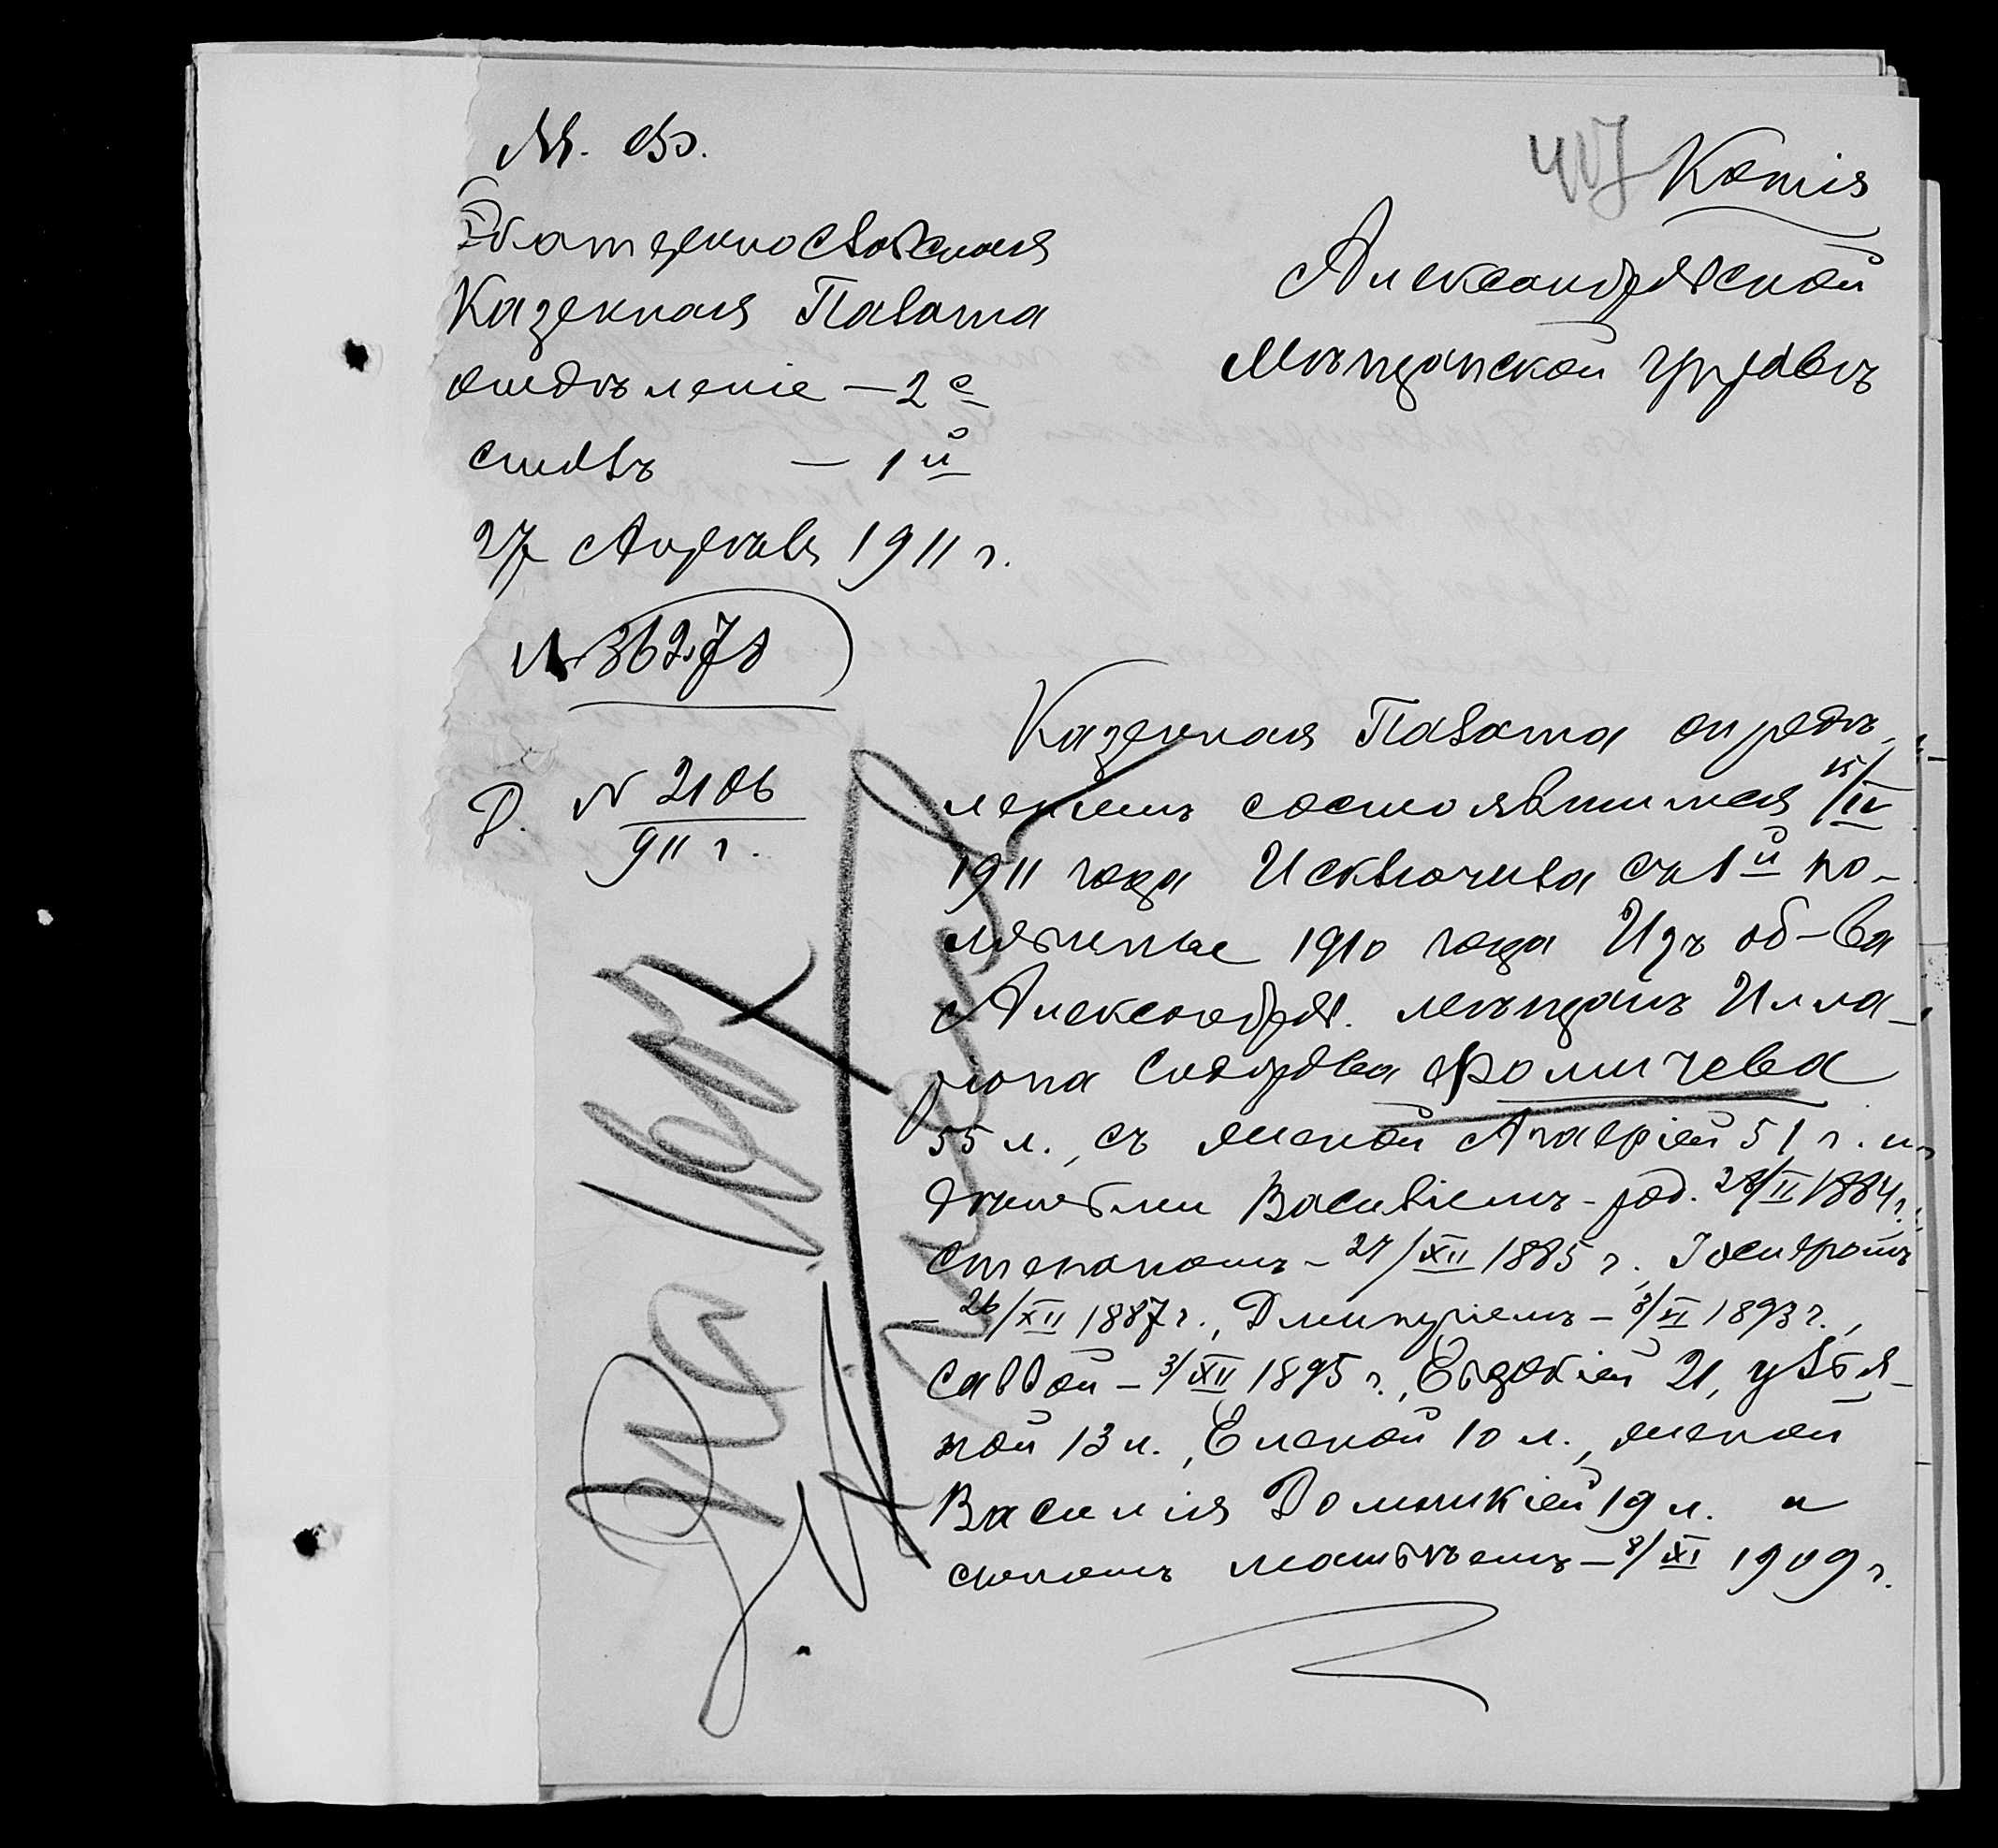 М. Ф.
Екатеринославская
Казенная Палата
отдѣленіе — 2е
столъ — 1й
27 Апрѣля 1911 г.
№ 36278
Д. № 2106
911 г.
407
Копія
Александровской
Мѣщанской Управѣ
Казенная Палата опредѣ-
леніемъ состоявшимся 15/IV
1911 года Исключила съ 1й по-
ловины 1910 года Изъ об-ва
Александров. мѣщанъ Илла-
ріона Сидорова Фомичева
55 л., съ женой Агафіей 51 г. и
дѣтьми Василіемъ - род. 28/II 1884 г.,
Степаномъ - 27/XII 1885 г., Іосифомъ
- 26/XII 1887 г., Дмитріемъ - 8/VI 1893 г.,
Саввой - 3/XII 1895 г., Евдокіей 21, Улья-
ной 13 л., Еленой 10 л., женой
Василія Домникіей 19 л. и
сыномъ Матвѣемъ - 8/XI 1909 г.